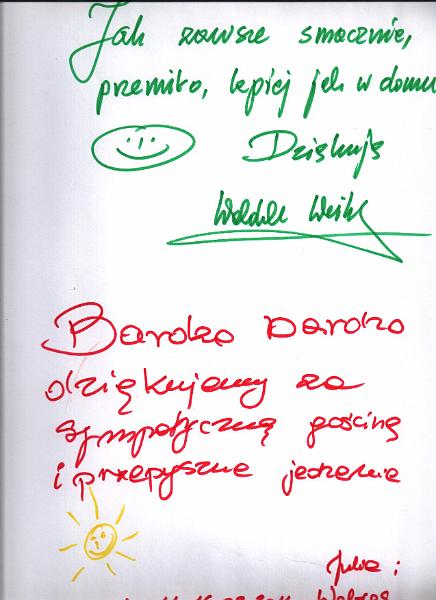 Jak zawsze smacznie,
przemiło, lepiej jak w domu
Dziękuję
Bardzo bardzo
dziękujemy za
sympatyczną gościnę
i przepyszne jedzenie
Julia i